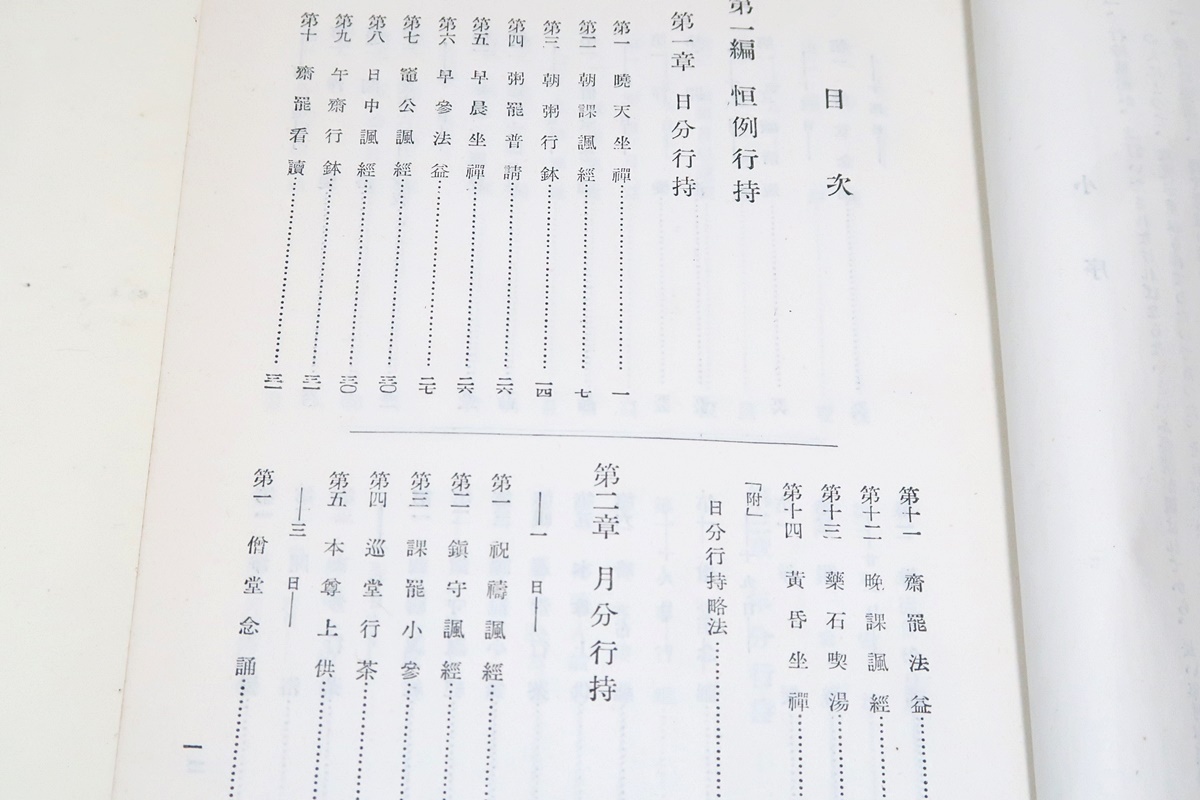 目次
第一編 恒例行持
第一章 日分行持
第一 曉天坐禪……一
第二 朝課諷經……七
第三 朝粥行鉢……一四
第四 粥罷普請……二六
第五 早晨坐禪……二六
第六 早參法益……二七
第七 竈公諷經……三〇
第八 日中諷經……三〇
第九 午齋行鉢……三一
第十 齋罷看讀……三一
第十一 齋罷法益……
第十二 晩課諷經……
第十三 藥石喫湯……
第十四 黃昏坐禪……
「附」
日分行持略法……
第二章 月分行持
——一日——
第一 祝禱諷經……
第二 鎭守諷經……
第三 課罷小參……
第四 巡堂行茶……
第五 本尊上供……
——三日——
第一 僧堂念誦……
一
小序